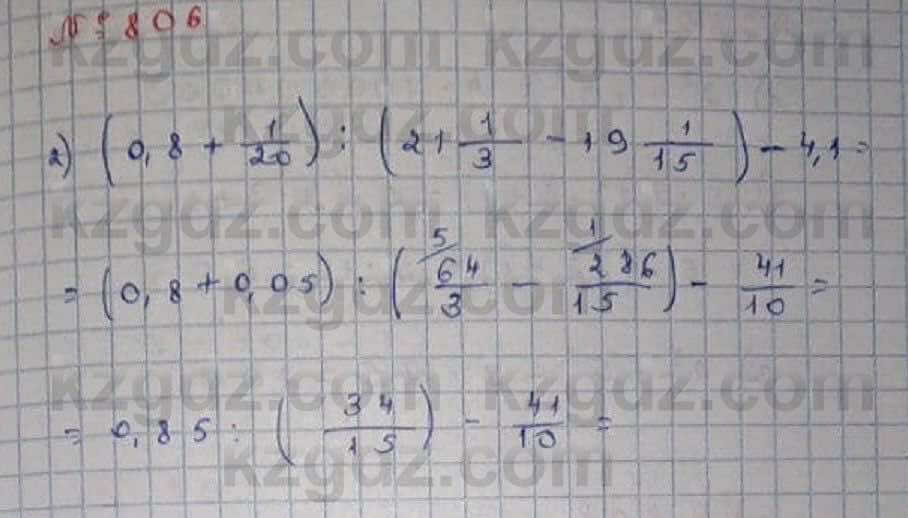 № 806
2) (0,8 + 1/20) : (21 1/3 - 19 1/15) - 4,1 =
= (0,8 + 0,05) : (5/ 64/3 - 1/ 286/15) - 41/10 =
= 0,85 : (34/15) - 41/10 =
kzgdz.com kzgdz.com
kzgdz.com
kzgdz.com kzgdz.com
kzgdz.com
kzgdz.com kzgdz.com
kzgdz.com